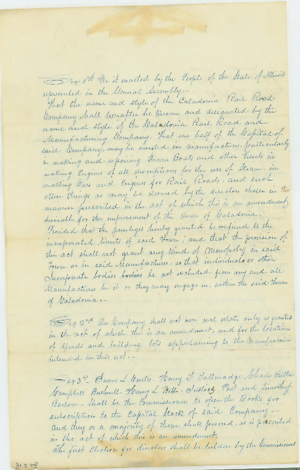 Sec 1st Be it enacted by the People of the State of Illinois
represented in the General Assembly—
That the name and style of the Caledonia Rail Road
Company shall hereafter be known and designated by the
name and style of the Caledonia Rail Road and
Manufacturing Company. That one half of the Capital of
said Company, may be invested in manufactures, particularly
in making and repairing Steam Boats and other Vessels in
making Engines of all descriptions for the use of Steam— in
making Cars and Engines for Rail Roads; and such
other things as may be deemed by the directors chosen in the
manner prescribed in the act of which this is an amendment,
desirable for the improvement of the Town of Caledonia.
Provided that the privilege hereby granted be confined to the
incorporated limits of said Town; and that the provision of
the act shall not grant any kinds of Monopoly in said
Town or in said Manufactures, so that individuals or other
Incorporate bodies be not excluded from any and all
Manufactures be it as they may engage in, within the said Town
of Caledonia—
Sec 2nd The Company shall not own real estate only as granted
in the act of which this is an amendment, and for the location
of Yards and building lots appertaining to the Manufactories
intended in this act—
Sec 3d. Henry L. Tallmadge Charles
Campbell Henry L. Webb and Timothy
shall be the Commissioners to open the Books for
subscription to the Capital Stock of said Company—
And they or a majority of them shall proceed, as is presented
in the act of which this is an amendment.
The first election for directors shall be holden by the Commissioners